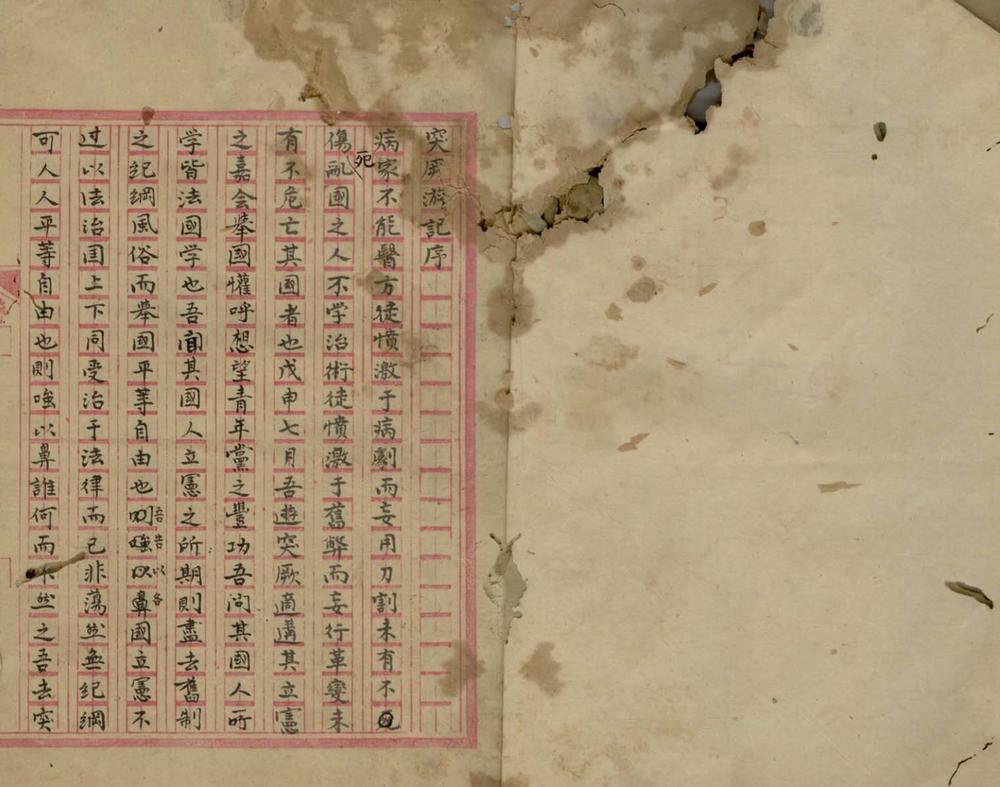 突厥游記序
病家不能醫方徒憤激于病劇而妄用刀割未有不
死傷亂國之人不学治術徒憤激于舊弊而妄行革變未
有不危亡其國者也戊申七月吾遊突厥適遘其立憲
之嘉会舉國懽呼想望青年黨之豐功吾问其國人所
学皆法國学也吾闻其國人立憲之所期則盡去舊制
之纪綱風俗而舉國平等自由也吾告以各國立憲不
过以法治国上下同受治于法律而已非蕩然無纪綱
可人人平等自由也則嗤以鼻誰何而不然之吾去突